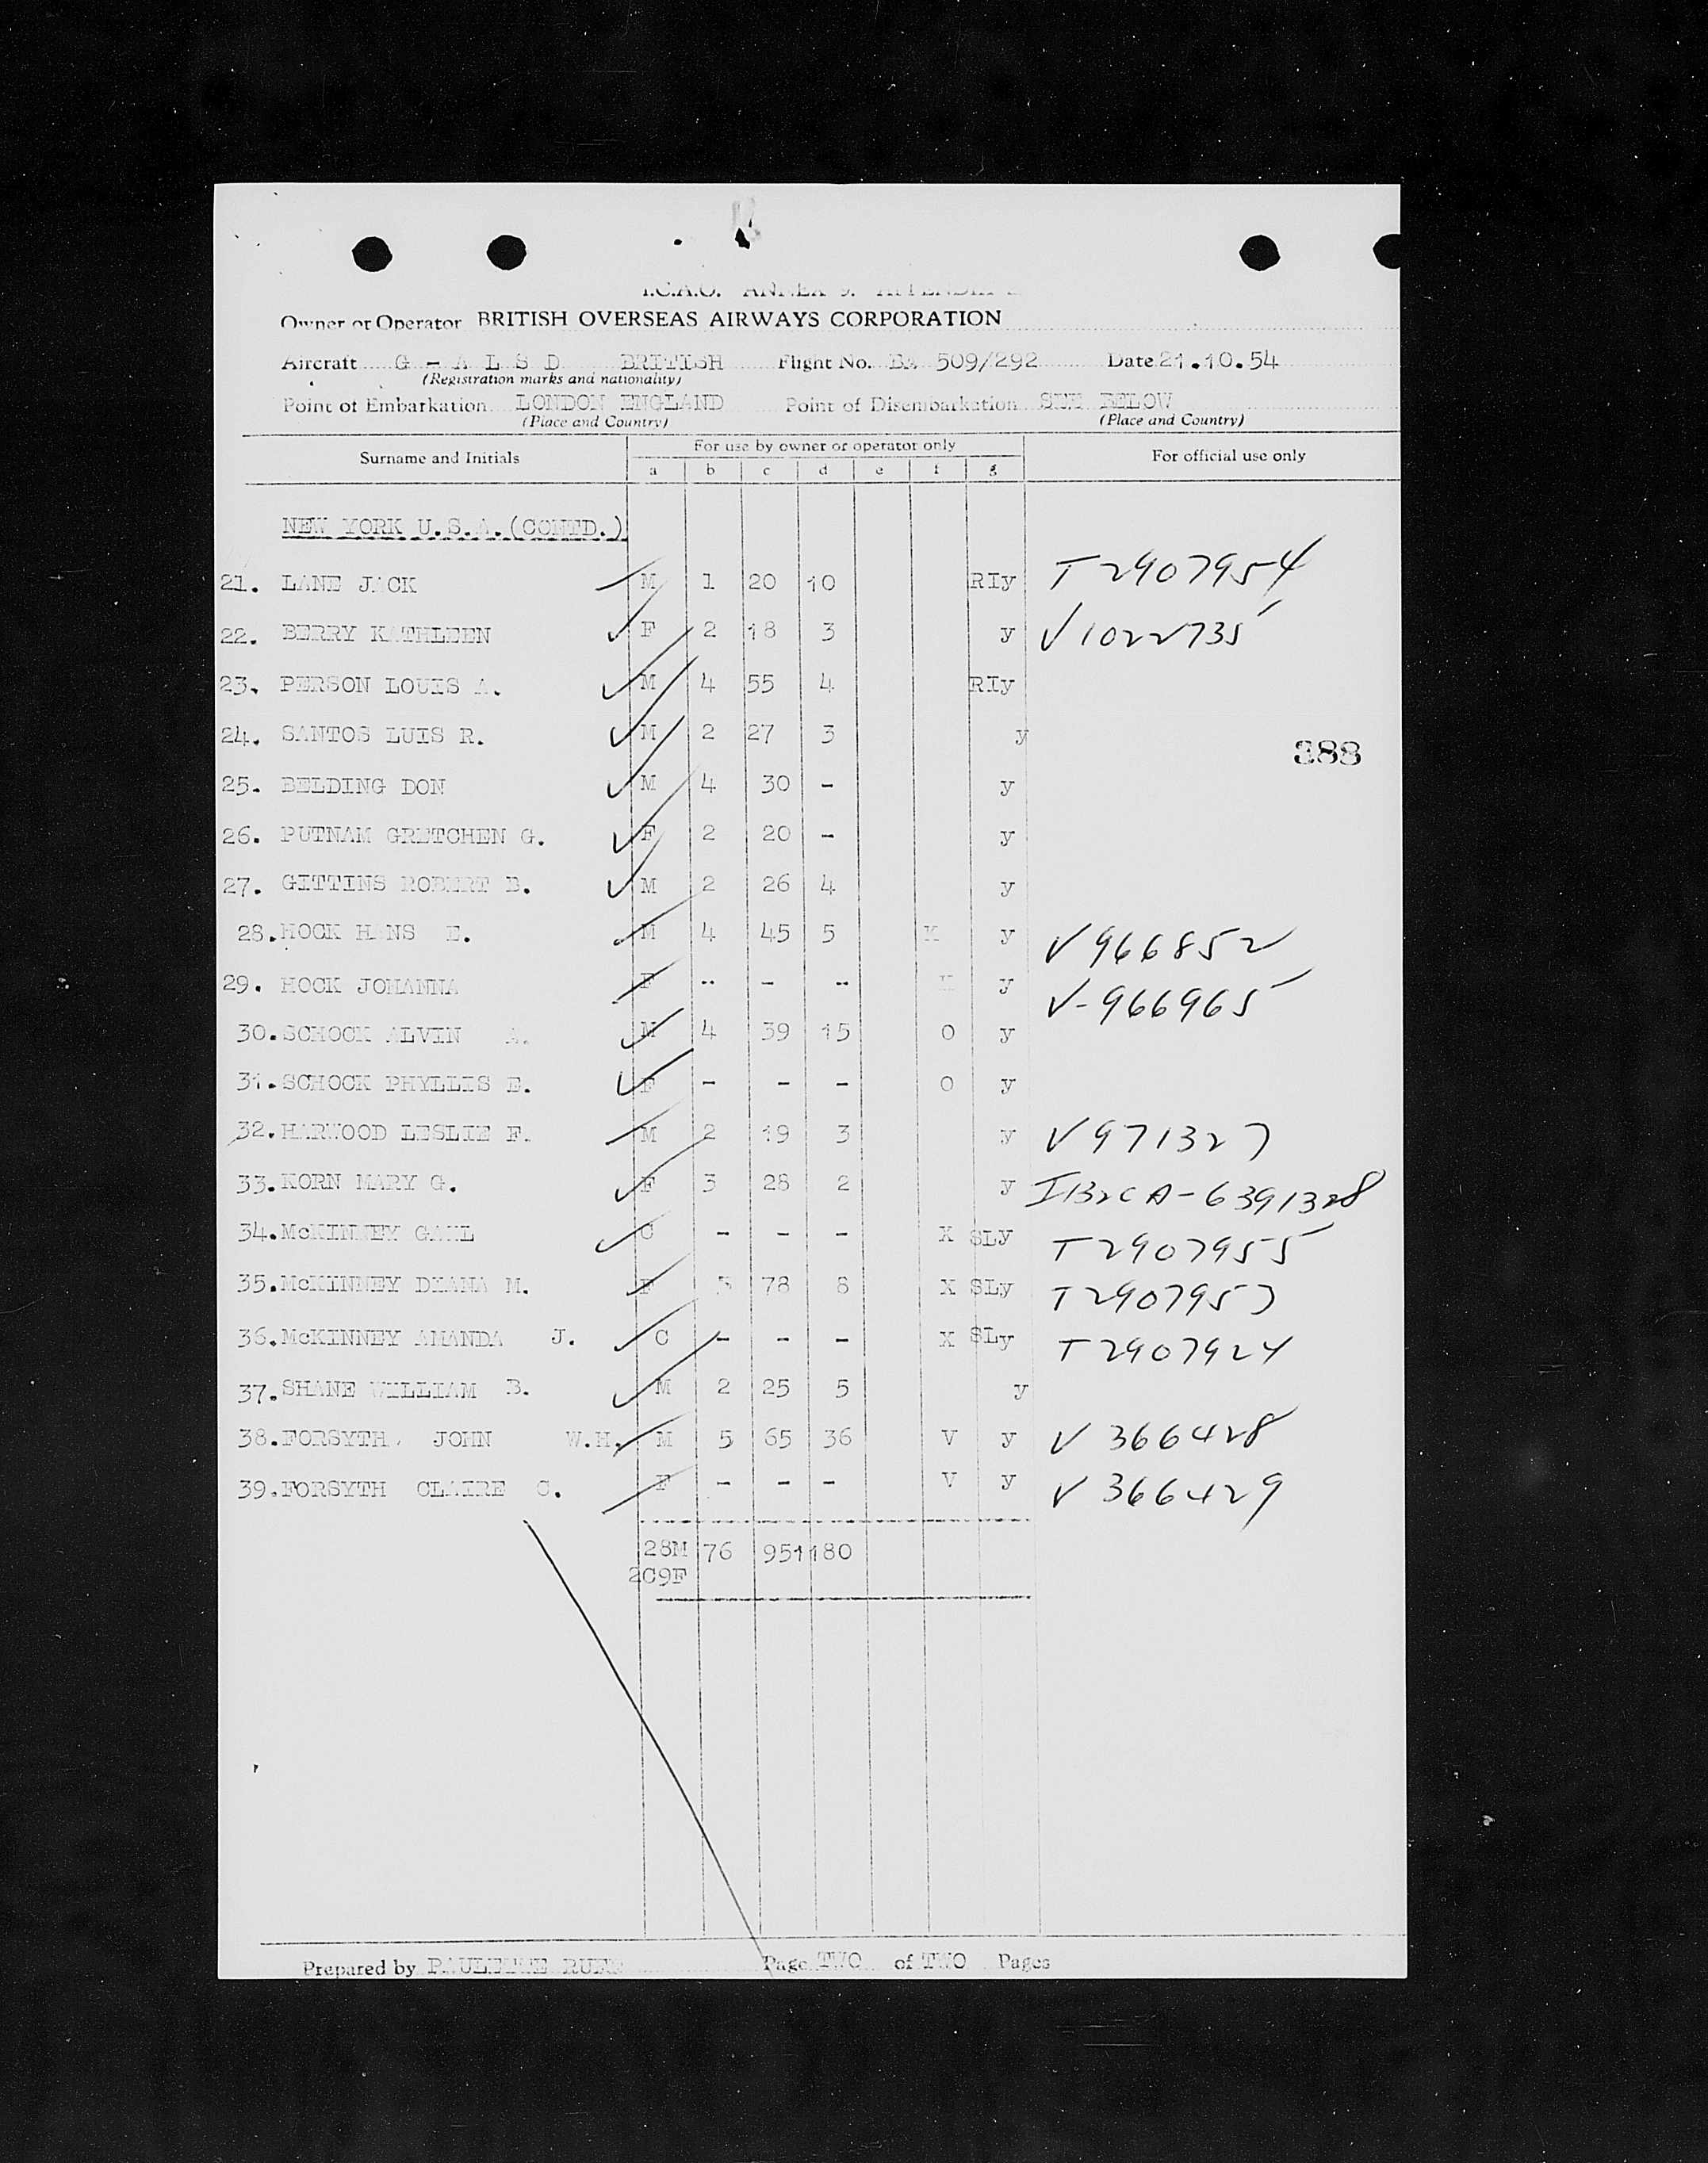 I.C.A.O. ANNEX 9. APPENDIX
Owner or Operator BRITISH OVERSEAS AIRWAYS CORPORATION
Aircraft G - A L S D BRITISH Flight No. BA 509/292 Date 21.10.54
(Registration marks and nationality)
Point of Embarkation LONDON ENGLAND Point of Disembarkation SEE BELOW
(Place and Country) (Place and Country)
Surname and Initials For use by owner or operator only For official use only
a b c d e f g
NEW YORK U.S.A.(CONTD.)
21. LANE JACK M 1 20 10 RIy T2907954
22. BERRY KATHLEEN F 2 18 3 y V1022735
23. PERSON LOUIS A. M 4 55 4 RIy
24. SANTOS LUIS R. M 2 27 3 y
388
25. BELDING DON M 4 30 - y
26. PUTNAM GRETCHEN G. F 2 20 - y
27. GITTINS ROBERT B. M 2 26 4 y
28. HOCK HANS E. M 4 45 5 K y V966852
29. HOCK JOHANNA F - - - y V-966965
30. SCHOCK ALVIN A. M 4 39 15 O y
31. SCHOCK PHYLLIS E. F - - - O y
32. HARWOOD LESLIE F. M 2 19 3 y V971327
33. KORN MARY G. F 3 28 2 y I132CA-6391328
34. McKINNEY GAHL C - - - X SLy T2907955
35. McKINNEY DIANA M. F 5 78 8 X SLy T2907953
36. McKINNEY AMANDA J. C - - - X SLy T2907924
37. SHANE WILLIAM B. M 2 25 5 y
38. FORSYTH, JOHN W.H. M 5 65 36 V y V 366428
39. FORSYTH CLAIRE C. F - - - V y V 366429
28M 76 951 180
2C9F
Prepared by PAULINE Page TWO of TWO Pages